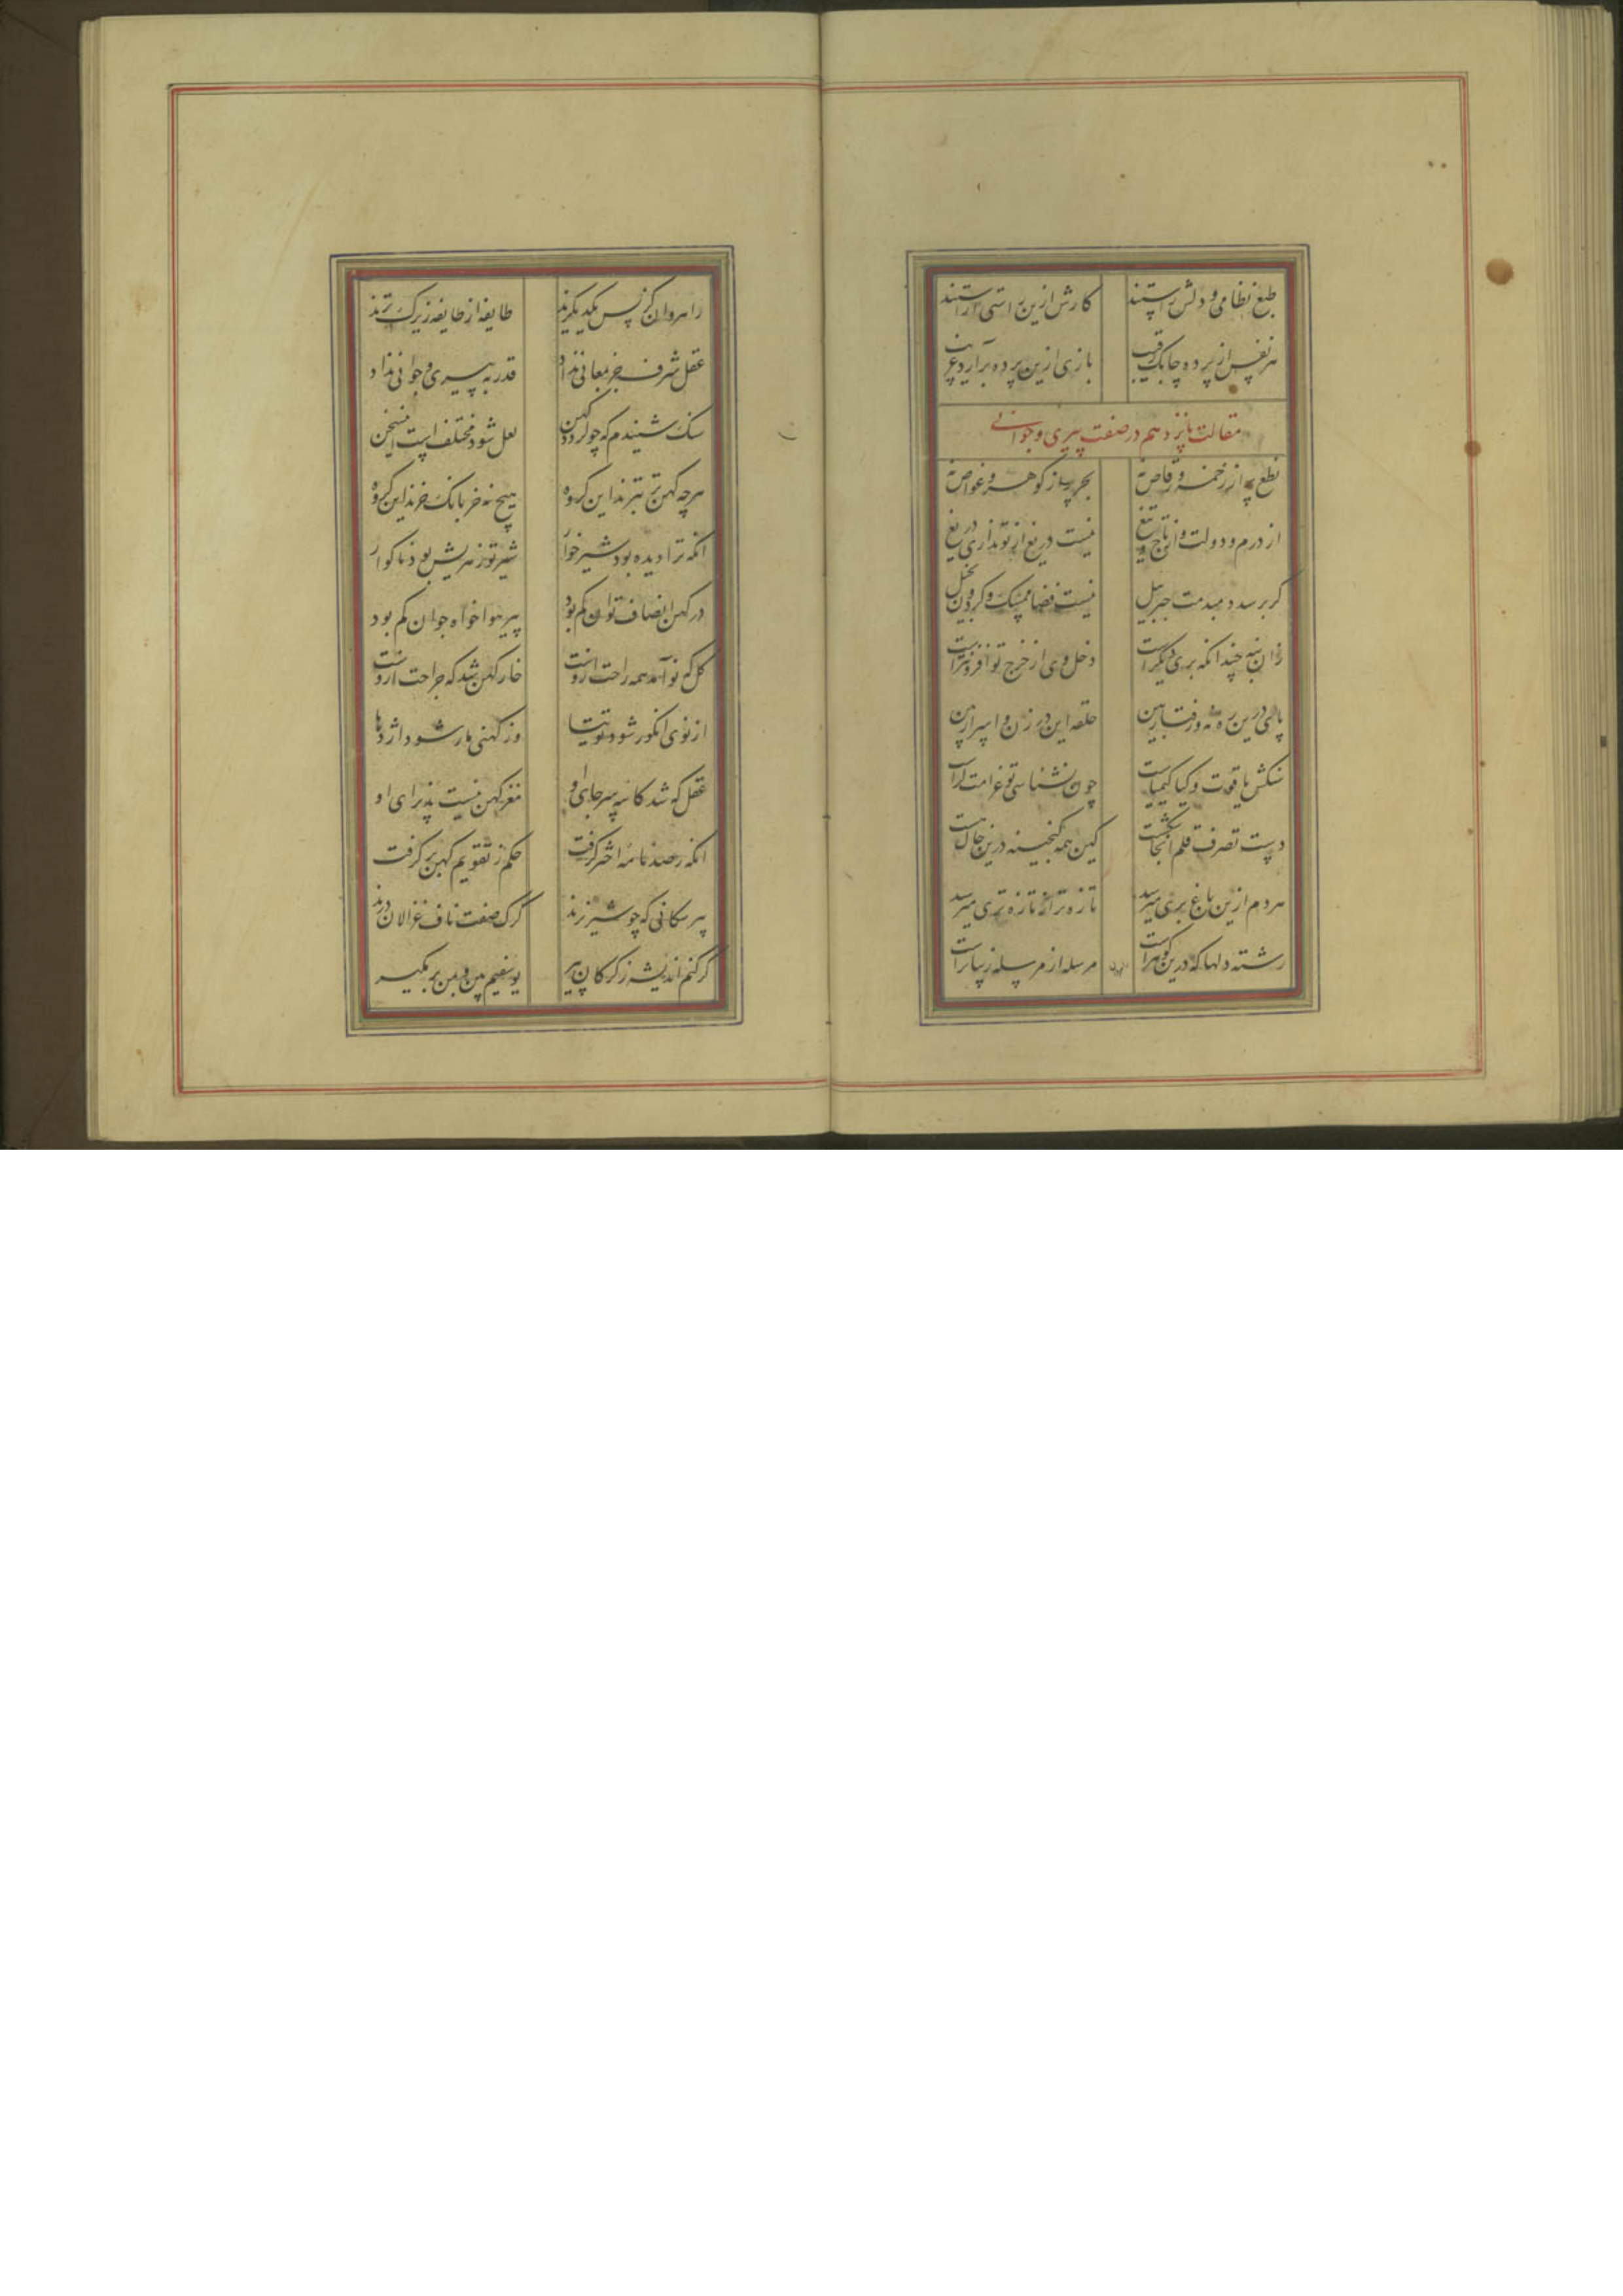 طبع نظامی و دلش راستند کارش ازین راستی آراستند
هر نفس از پرده چابک رقیب بازی ازین پرده برآرد غریب
مقالت پانزدهم در صفت پیری و جوانی
نطع پر از زخمه و رقاص نه بحر پر از گوهر و غواص نه
از درم و دولت و از تاج و تیغ نیست دریغ ار تو نداری دریغ
گر برسد دمبدمت جبرییل نیست قضا ممسک و گردون بخیل
زان بنه چندانکه بری دیگرست دخل وی از خرج تو افزونترست
پای درین ره نه و رفتار بین حلقه این در زن و اسرار بین
سنگش یاقوت و گیا کیمیاست چون نشناسی تو غرامت کراست
دست تصرف قلم اینجا شکست کین همه گنجینه درین جا که هست
هر دم ازین باغ بری میرسد تازه تر از تازه تری میرسد
رشته دلها که درین گوهرست مرسله از مرسله زیباترست
راهروان کز پس یکدیگرند طایفه از طایفه زیرک ترند
عقل شرف جز بمعانی نداد قدر به پیری و جوانی نداد
سنگ شنیدم که چو گردد کهن لعل شود مختلف است این سخن
هر چه کهن تر بترند این گروه هیچ نه جز بانگ خرند این گروه
انکه ترا دیده بود شیر خوار شیر تو زهریش بود ناگوار
در کهن انصاف توان کم بود پیر هوا خواه جوان کم بود
گل که نو آمد همه راحت دروست خار کهن شد که جراحت دروست
از نوی انگور شود توتیا وز کهنی مار شود اژدها
عقل که شد کاسه سر جای او مغز کهن نیست پذیرای او
انکه رصد نامه اختر گرفت حکم ز تقویم کهن بر گرفت
پیر سگانی که چو شیر نرند گرگ صفت ناف غزالان درند
گر کنم اندیشه ز گرگان پیر یوسفیم بین و بمن بر مگیر